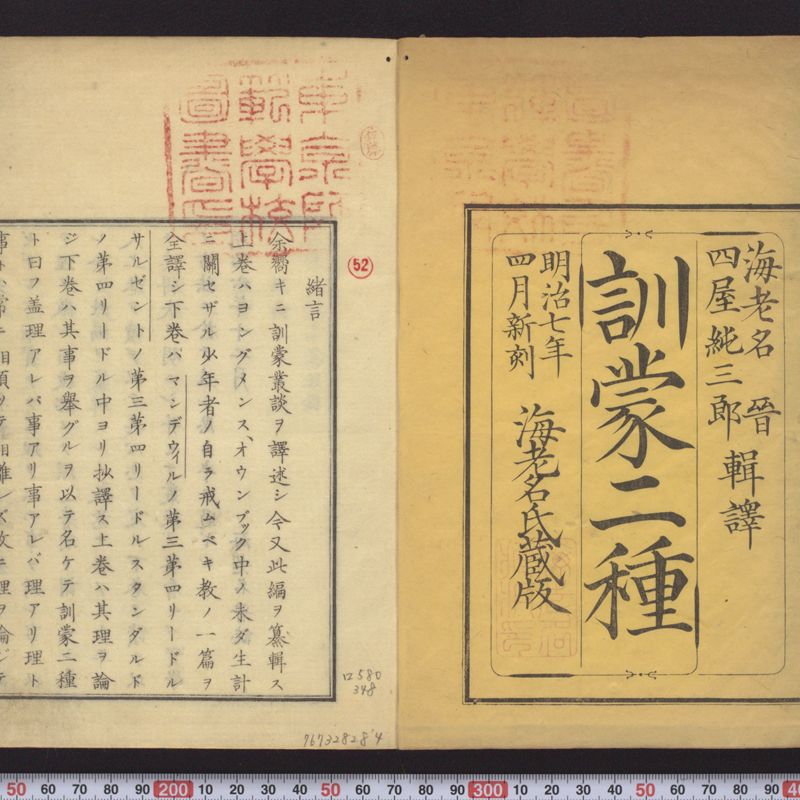 海老名 晉
四屋純三郎 輯譯
訓蒙二種
明治七年
四月新刻
海老名氏藏版
東京師
範學校
圖書印
52
緒言
余嚮キニ訓蒙叢談ヲ譯述シ今又此編ヲ纂輯ス
上巻ハヨングメンス、オウンブック中ノ未ダ生計
ニ關セザル少年者ノ自ラ戒ムベキ教ノ一篇ヲ
全譯シ下巻ハマンデウィルノ第三第四リードル
サルゼントノ第三第四リードルスタンダルド
ノ第四リードル中ヨリ抄譯ス上巻ハ其理ヲ論
ジ下巻ハ其事ヲ舉グルヲ以テ名ケテ訓蒙二種
ト曰フ盖理アレバ事アリ事アレバ理アリ理ト
ロ580
348
767328284
50 60 70 80 90 200 10 20 30 40 50 60 70 80 90 300 10 20 30 40 50 60 70 80 90